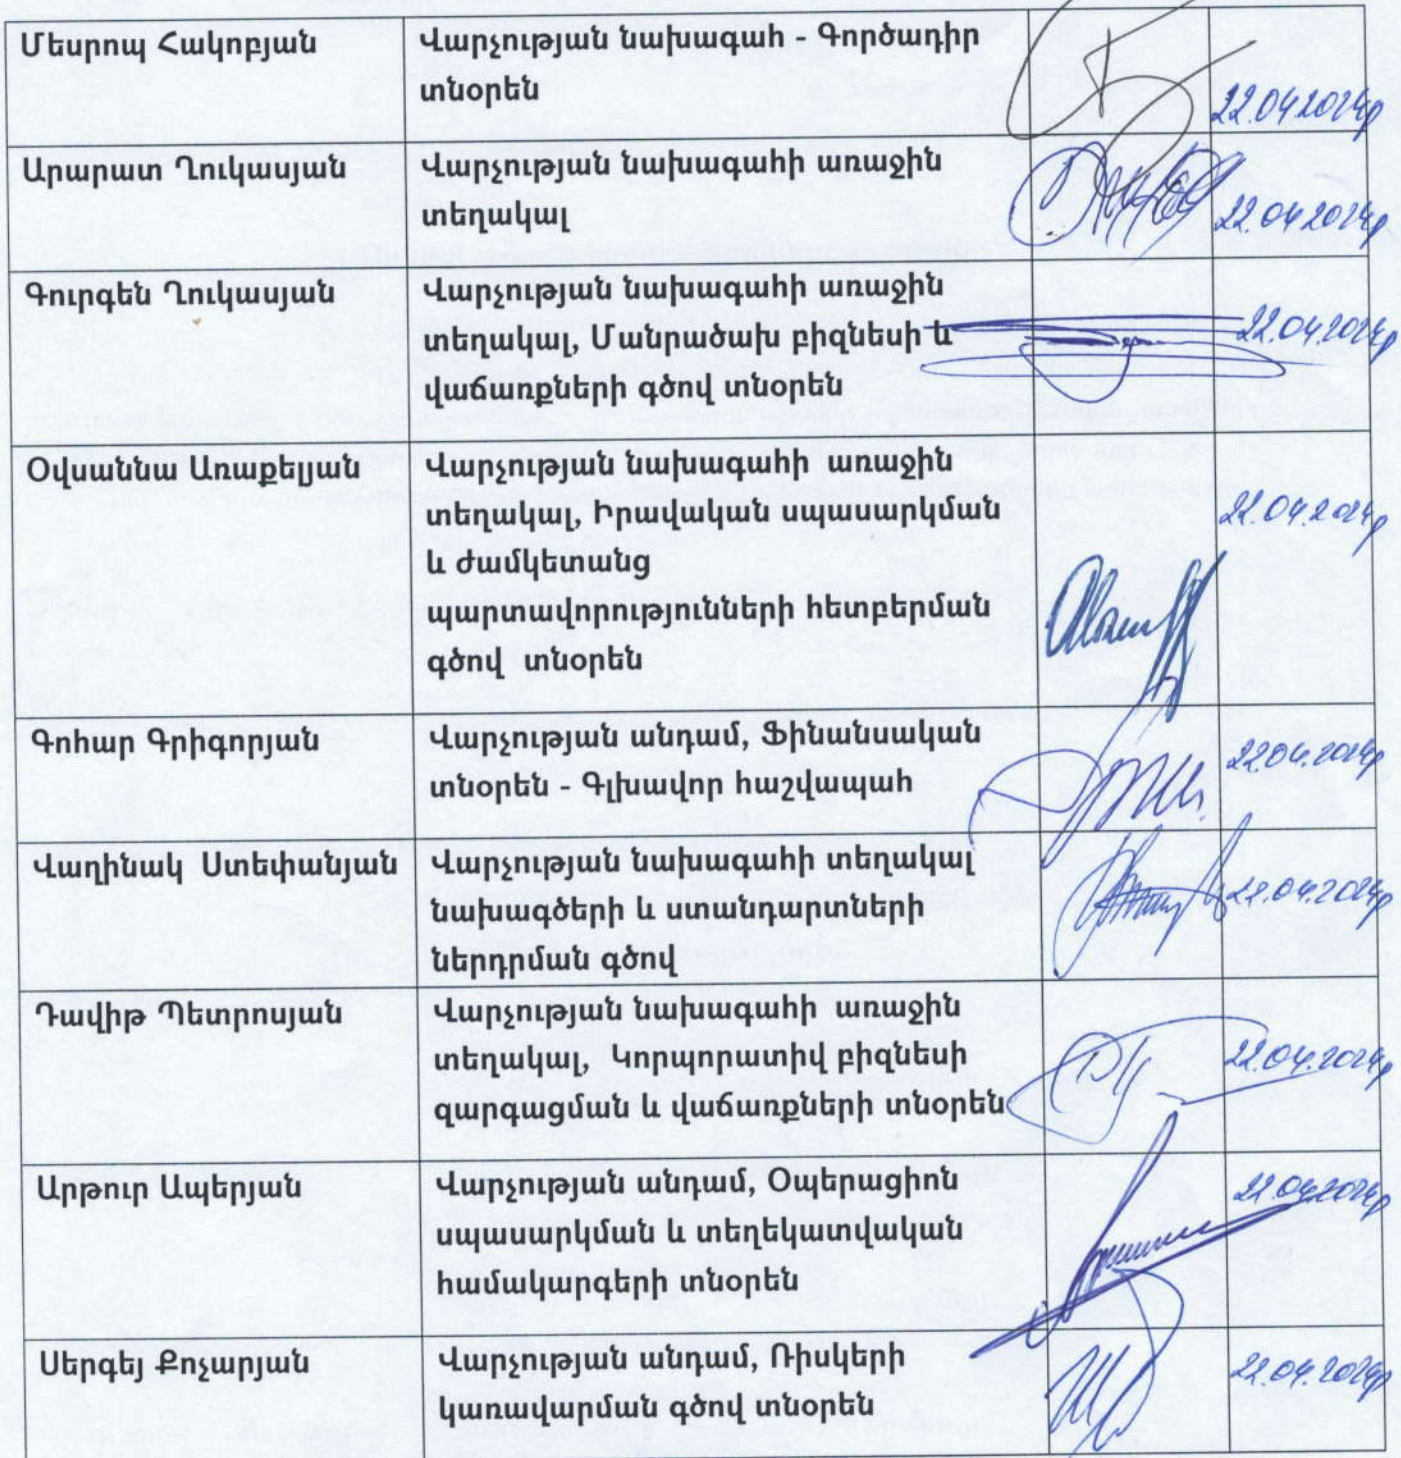 Մեսրոպ Հակոբյան
Վարչության նախագահ - Գործադիր
տնօրեն
22.04.2024թ
Արարատ Ղուկասյան
Վարչության նախագահի առաջին
տեղակալ
22.04.2024թ
Գուրգեն Ղուկասյան
Վարչության նախագահի առաջին
տեղակալ, Մանրածախ բիզնեսի և
վաճառքների գծով տնօրեն
22.04.2024թ
Օվսաննա Առաքելյան
Վարչության նախագահի առաջին
տեղակալ, Իրավական սպասարկման
և ժամկետանց
պարտավորությունների հետբերման
գծով տնօրեն
22.04.2024թ
Գոհար Գրիգորյան
Վարչության անդամ, Ֆինանսական
տնօրեն - Գլխավոր հաշվապահ
22.04.2024թ
Վաղինակ Ստեփանյան
Վարչության նախագահի տեղակալ
նախագծերի և ստանդարտների
ներդրման գծով
22.04.2024թ
Դավիթ Պետրոսյան
Վարչության նախագահի առաջին
տեղակալ, Կորպորատիվ բիզնեսի
զարգացման և վաճառքների տնօրեն
22.04.2024թ
Արթուր Ապերյան
Վարչության անդամ, Օպերացիոն
սպասարկման և տեղեկատվական
համակարգերի տնօրեն
22.04.2024թ
Սերգեյ Քոչարյան
Վարչության անդամ, Ռիսկերի
կառավարման գծով տնօրեն
22.04.2024թ